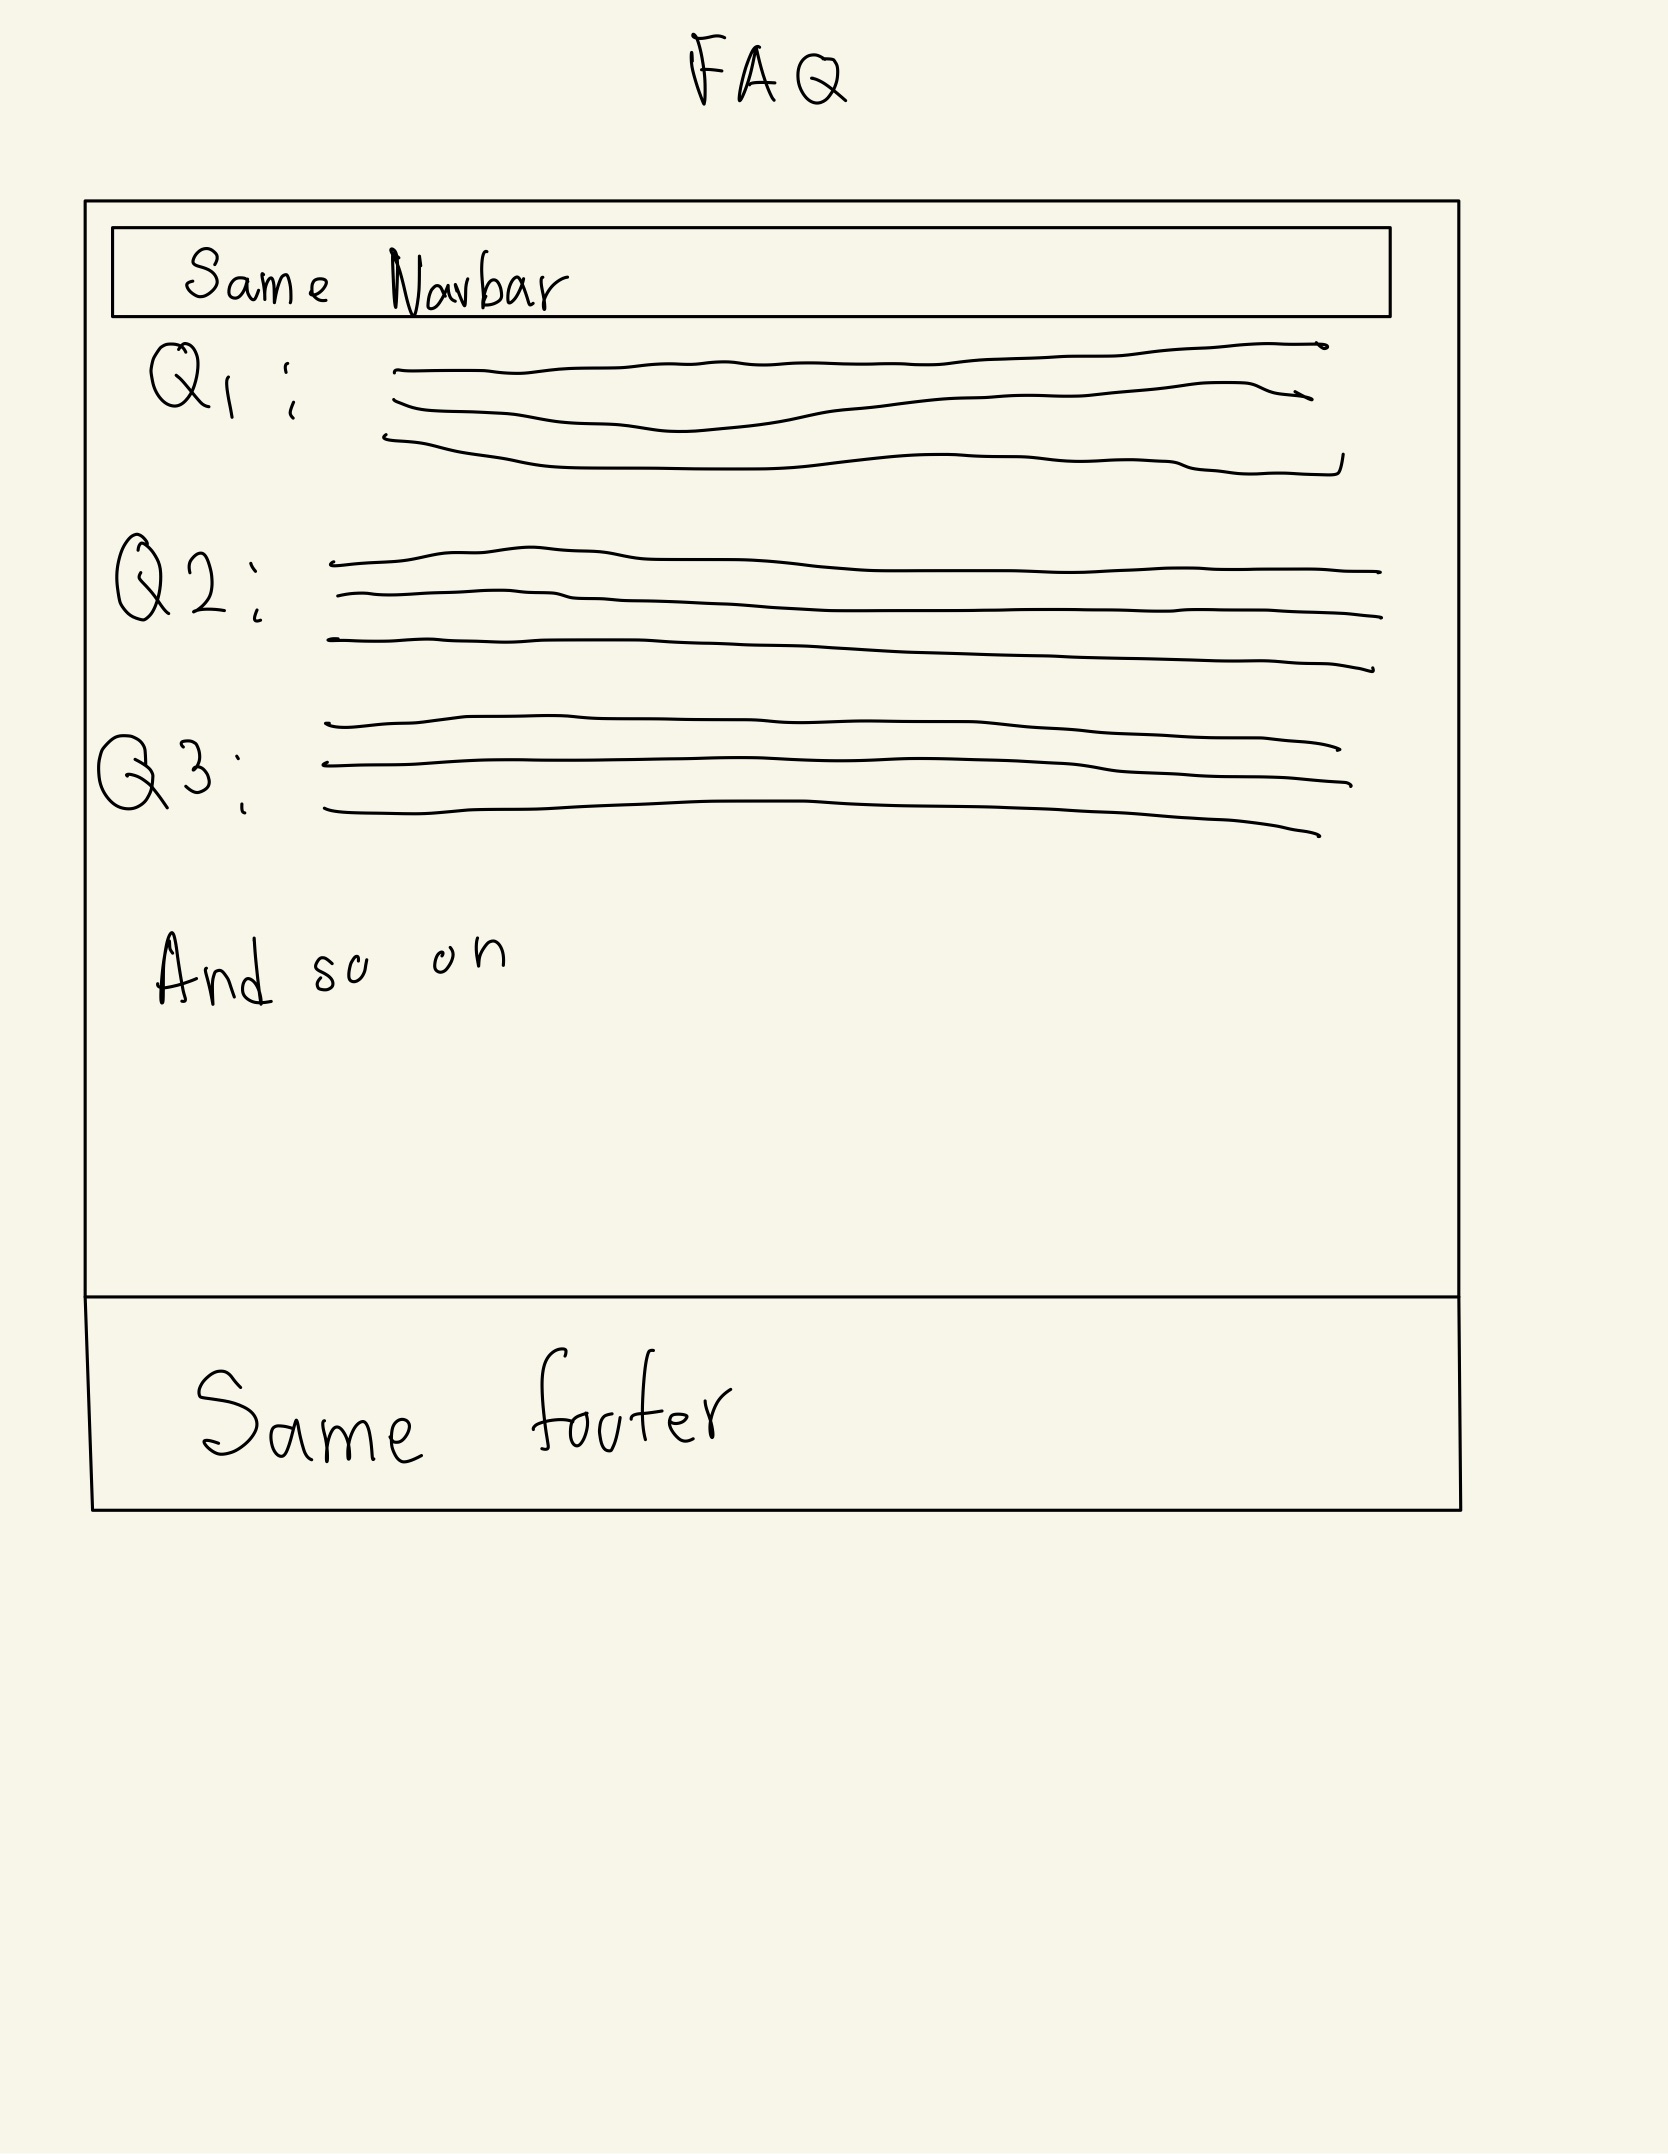 FAQ
Same Navbar
Q1:
Q2:
Q3:
And so on
Same footer